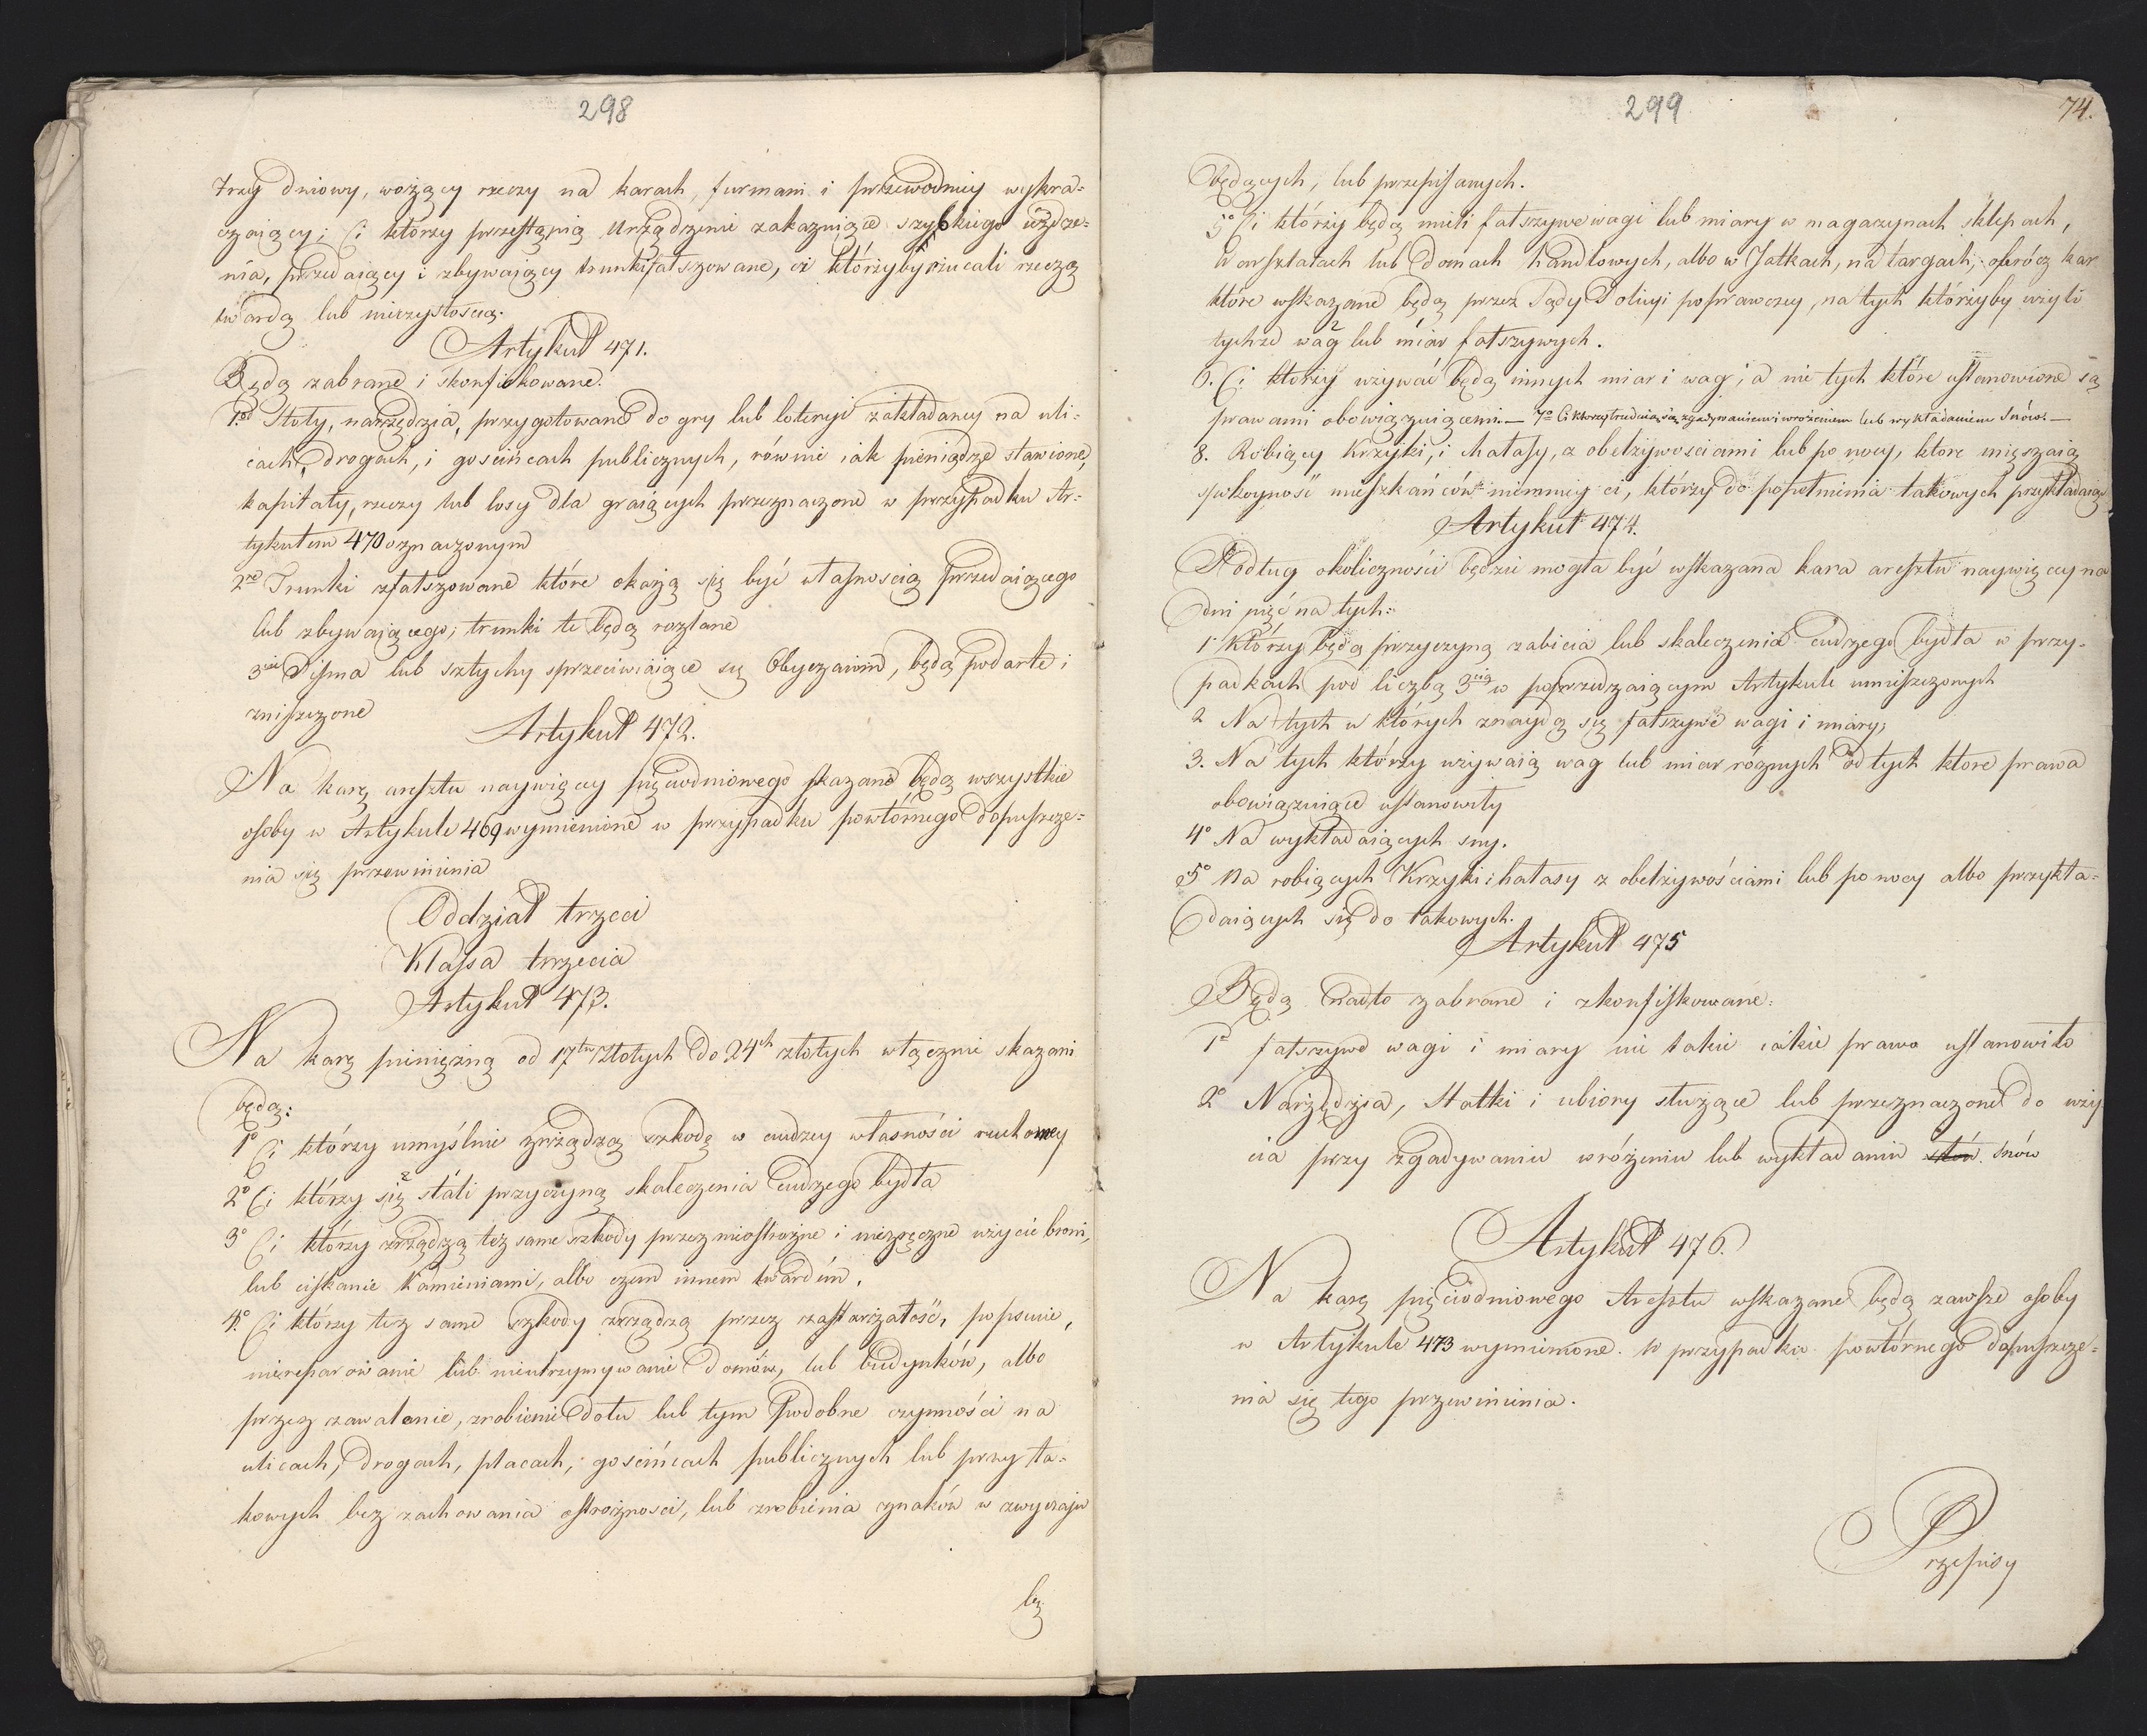 298
trzy dniowy, wożący rzeczy na karach, furmani i przewodnicy wykra=
czaiący; Ci którzy przestąpią Urządzenie zakazuiące szybkiego uźdze=
nia, przedaiący i zbywaiący trunki fatszowane, ci którzyby rzucali rzeczą
twardą lub nieczystością.
Artykuł 471.
Będą zabrane i skonfiskowane.
1º Stoły, narzędzia, przygotowane do gry lub loteryi zakładaney na uli=
cach, drogach, i gościńcach publicznych, równie iak pieniądze stawione,
kapitały, rzeczy lub losy dla graiących przeznaczone w przypadku Ar=
tykułem 470 oznaczonym
2re Trunki zfałszowane które okażą się być własnością przedaiącego
lub zbywaiącego; trunki te będą rozlane
3cie Pisma lub sztychy sprzeciwiaiące się Obyczaiom, będą podarte i
zniszczone
Artykuł 472.
Na karę aresztu naywięcey pięciodniowego skazane będą wszystkie
osoby w Artykule 469 wymienione w przypadku powtórnego dopuszcze=
nia się przewinienia
Oddział trzeci
Klassa trzecia
Artykuł 473.
Na karę pieniężną od 17tu złotych do 24ch złotych włącznie skazani
będą:
1º Ci którzy umyślnie zrządzą szkodę w cudzey własności ruchomey
2º Ci którzy się stali przyczyną skaleczenia cudzego bydła
3º Ci którzy zrządzą też same szkody przez nieostrożne i niezręczne użycie broni,
lub ciskanie kamieniami, albo czem innem twardem.
4º Ci którzy też same szkody zrządzą przez zastarzałość, popsucie,
niereparowanie lub nieutrzymywanie domów, lub budynków, albo
przez zawalenie, zrobienie dołu lub tym podobne czynności na
ulicach, drogach, placach, gościńcach publicznych lub przy ta=
kowych bez zachowania ostrożności, lub zrobienia znaków w zwyczaju
bę
299
74.
będących, lub przepisanych.
5º Ci którzy będą mieli fałszywe wagi lub miary w magazynach sklepach,
Warsztatach lub domach handlowych, albo w Jatkach, na targach, oprócz kar
które wskazane będą przez Sądy Policyi poprawczey, na tych którzyby użyli
tychże wag lub miar fałszywych.
6. Ci którzy używać będą innych miar i wag, a nie tych które ustanowione są
prawami obowiązuiącemi. — 7º Ci którzy trudnią się zgadywaniem i wróżeniem lub wykładaniem Snów. —
8. Robiący Krzyki, i hałasy, z obelżywościami lub po nocy, które mięszaią
spokoyność mieszkańców niemniey ci, którzy do popełnienia takowych przykładaią
Artykuł 474.
Podług okoliczności będzie mogła być wskazana kara aresztu naywięcey na
dni pięć na tych:
1 Którzy będą przyczyną zabicia lub skaleczenia cudzego bydła w przy-
padkach pod liczbą 3cią w poprzedzaiącym Artykule umieszczonych
2 Na tych u których znaydą się fałszywe wagi i miary;
3. Na tych którzy używaią wag lub miar różnych od tych które prawa
obowiązuiące ustanowiły
4º Na wykładaiących sny.
5º Na robiących Krzyki i hałasy z obelżywościami lub po nocy albo przykła=
daiących się do takowych.
Artykuł 475
Będą nadto zabrane i skonfiskowane:
1º fałszywe wagi i miary nie takie iakie prawo ustanowiło
2º Narzędzia, Statki i ubiory służące lub przeznaczone do uży
cia przy zgadywaniu wróżeniu lub wykładaniu słów. snów
Artykuł 476.
Na karę pięciodniowego Aresztu wskazane będą zawsze osoby
w Artykule 473 wymienione. w przypadku powtórnego dopuszcze=
nia się tego przewinienia.
Przepisy